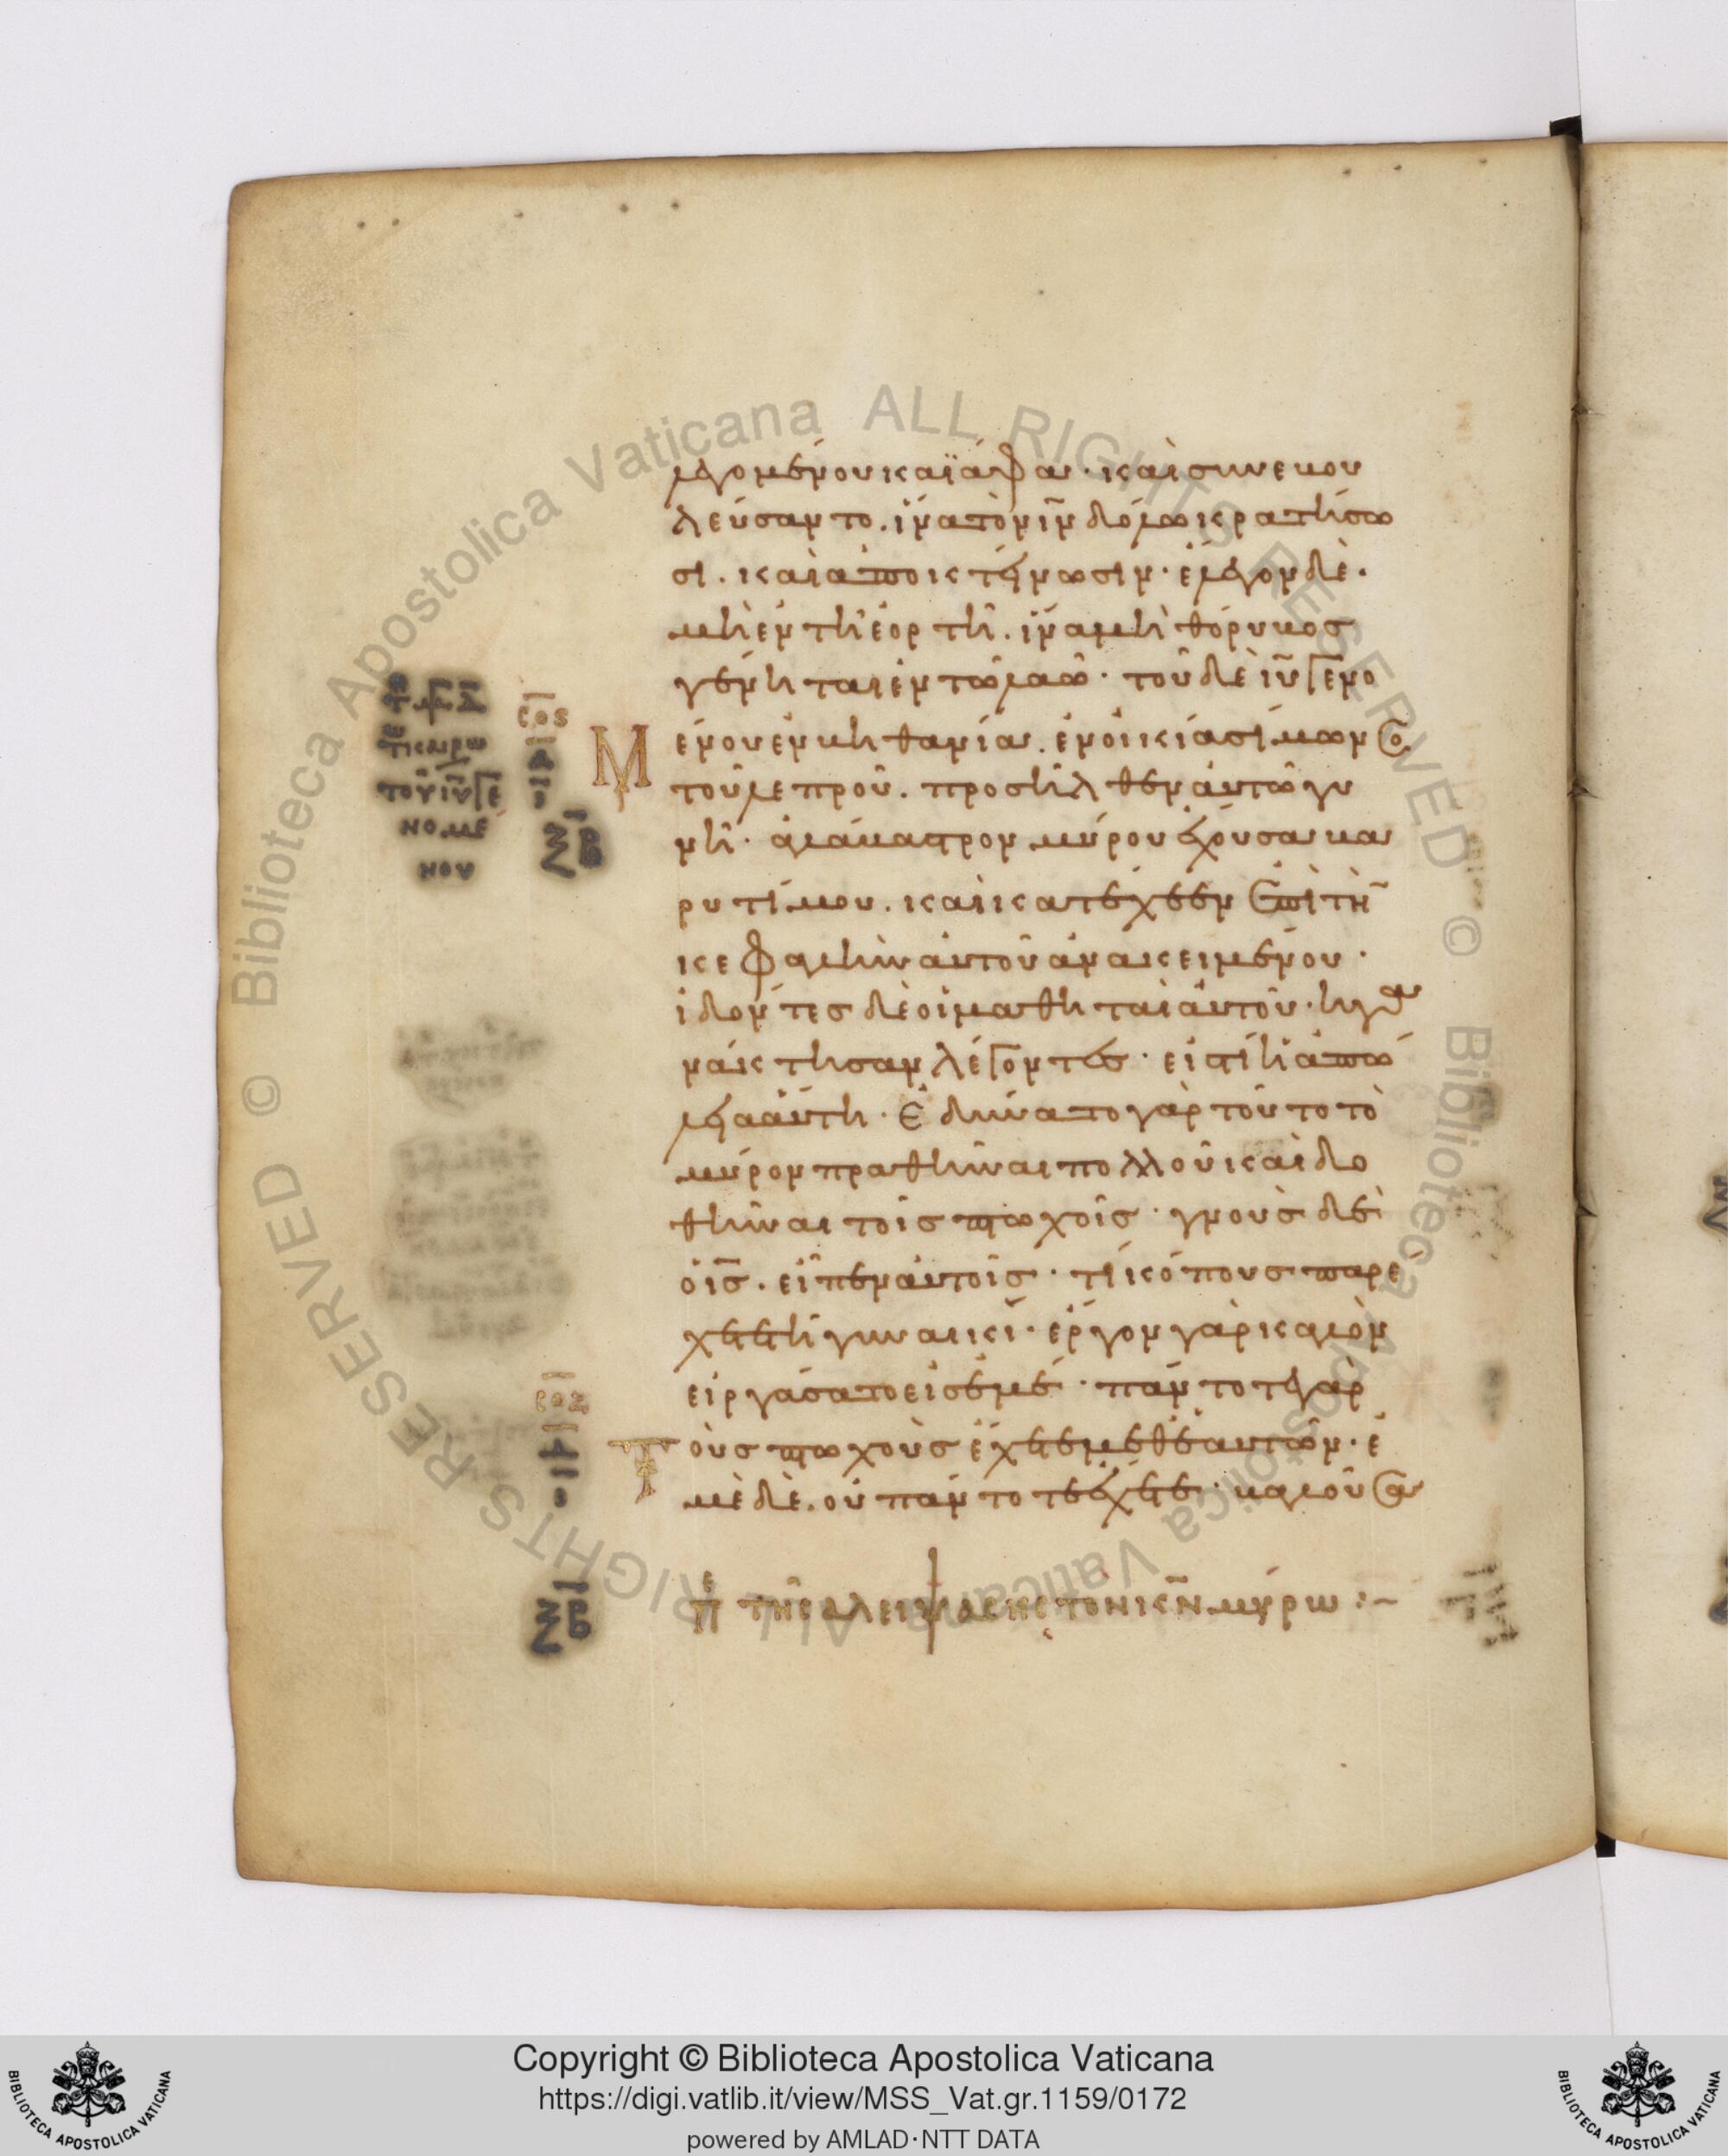 λεγομένου καϊάφα· καὶ συνεβου
λεύσαντο. ἵνα τὸν ιν̅ δόλω κρατήσω
σι. καὶ ἀποκτείνωσιν· ἔλεγον δὲ.
μὴ ἐν τῆ ἑορτῆ. ἵνα μὴ θόρυβος
γένηται ἐν τῶ λαῶ· τοῦ δὲ ιυ̅ γενο
Μ ένου ἐν βηθανία. ἐν οἰκία σίμωνο
τοῦ λεπροῦ. προσῆλθεν αὐτῶ γυ
νὴ· ἀλάβαστρον μύρου ἔχουσα βα
ρυτίμου. καὶ κατέχεεν ἐπὶ τὴν
κεφαλὴν αὐτοῦ ἀνακειμένου·
ἰδόντες δὲ οἱ μαθηταὶ αὐτοῦ· ἠγα
νάκτησαν λέγοντες· εἰς τί ἡ ἀπώ
λεια αὕτη· ἐδύνατο γὰρ τοῦτο τὸ
μύρον πραθῆναι πολλοῦ καὶ δο
θῆναι τοῖς πτωχοῖς· γνοὺς δὲ
ὁ ις̅. εἶπεν αὐτοῖς· τί κόπους παρέ
χετε τῆ γυναικί· ἔργον γὰρ καλὸν
εἰργάσατο εἰς ἐμέ· πάντοτε γὰρ
Τ οὺς πτωχοὺς ἔχετε μεθ' ἑαυτῶν· ἐ
μὲ δὲ. οὐ πάντοτε ἔχετε· βαλοῦσα
πε τῆς ἀλειψάσης τὸν κν̅ μύρω :~
τῶ καιρῶ
τοῦ ιυ̅ γε
νομέ
νου
ςος
ξβ
ςοζ
ξβ
Copyright © Biblioteca Apostolica Vaticana
https://digi.vatlib.it/view/MSS_Vat.gr.1159/0172
powered by AMLAD·NTT DATA
BIBLIOTECA APOSTOLICA VATICANA
BIBLIOTECA APOSTOLICA VATICANA
© Biblioteca Apostolica Vaticana ALL RIGHTS RESERVED
© Biblioteca Apostolica Vaticana ALL RIGHTS RESERVED